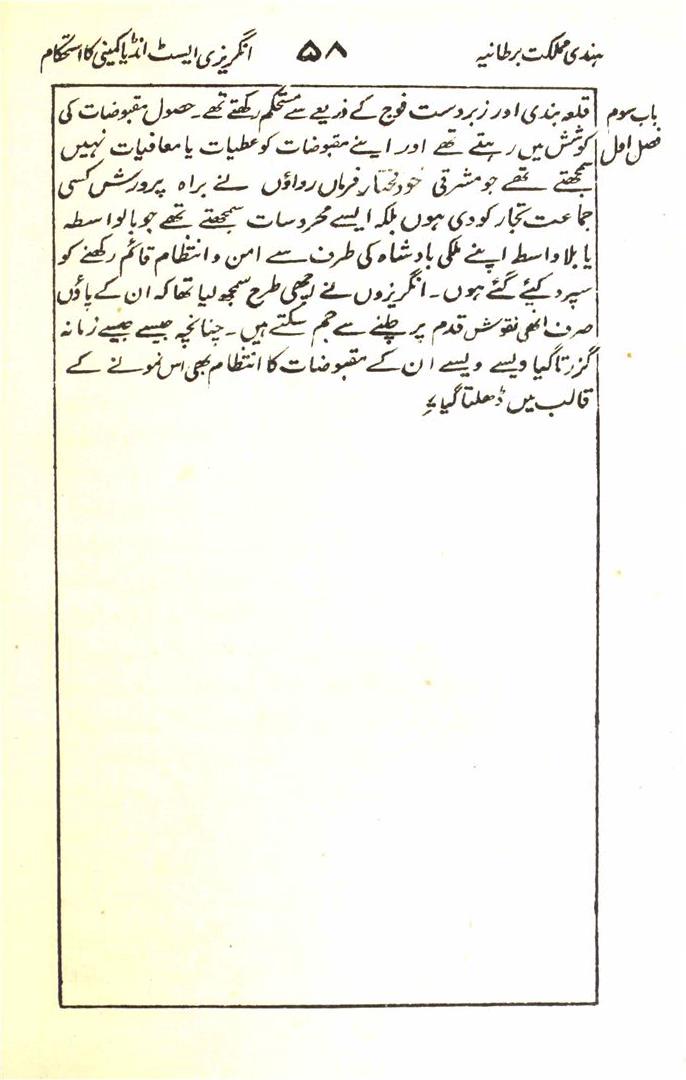 ہندی مملکت برطانیہ ۵۸ انگریزی ایسٹ انڈیا کمپنی کا استحکام
باب سوم
فصل اول
قلعہ بندی اور زبردست فوج کے ذریعے سے مستحکم رکھتے تھے۔ حصول مقبوضات کی
کوشش میں رہتے تھے اور اپنے مقبوضات کو عطیات یا معافیات نہیں
سمجھتے تھے جو مشرقی خود مختار فرماں رواؤں نے براہ پرورش کسی
جماعت تجار کو دی ہوں بلکہ ایسے محروسات سمجھتے تھے جو بالواسطہ
یا بلاواسطہ اپنے ملکی بادشاہ کی طرف سے امن و انتظام قائم رکھنے کو
سپرد کیئے گئے ہوں۔ انگریزوں نے اچھی طرح سمجھ لیا تھا کہ ان کے پاؤں
صرف انھی نقوش قدم پر چلنے سے جم سکتے ہیں۔ چنانچہ جیسے جیسے زمانہ
گزرتا گیا ویسے ویسے ان کے مقبوضات کا انتظام بھی اس نمونے کے
قالب میں ڈھلتا گیا